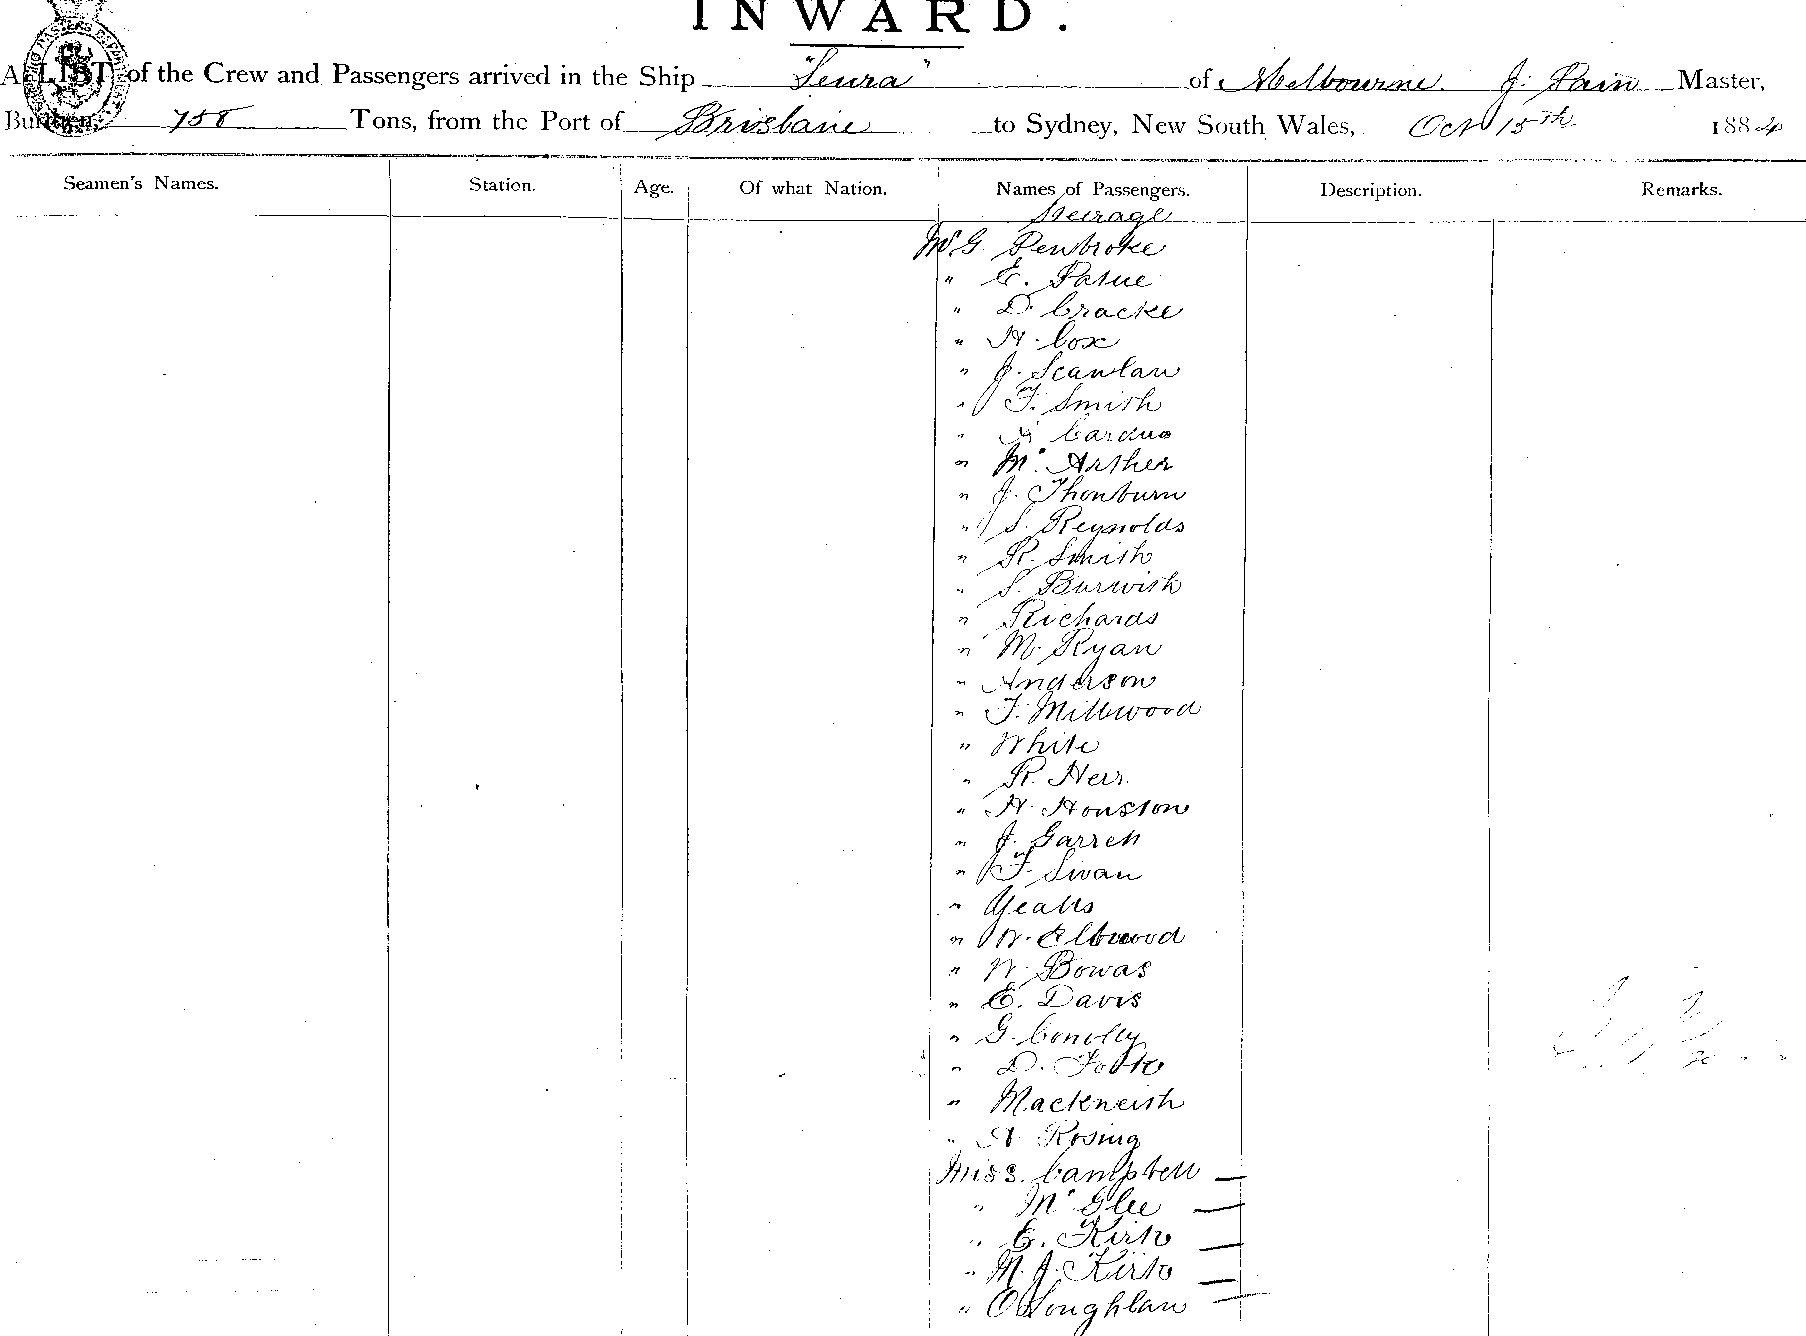 INWARD.
A LIST of the Crew and Passengers arrived in the Ship "Leura" of Melbourne J. Pain Master,
Burthen, 758 Tons, from the Port of Brisbane to Sydney, New South Wales, Oct 15th 1884
Seamen's Names. Station. Age. Of what Nation. Names of Passengers. Description. Remarks.
Steerage
Mr G. Penbroke
" E.
" D. Cracke
" H. Cox
" J. Scanlan
" F. Smith
" Cardus
" Mc Arther
" J. Thonburn
" S. Reynolds
" R. Smith
" S. Burwish
" Richards
" M. Ryan
" Anderson
" F. Millwood
" White
" R. Herr
" H. Houston
" J. Garrett
" F. Swan
" Yeatts
" W. Ellwood
" W. Bowas
" E. Davis
" G. Conolly
" D. Foote
" Mackneish
" A. Rosing
Miss. Campbell —
" Mc Glee —
" E. Kirk —
" M. J. Kirk —
" O'Loughlan —